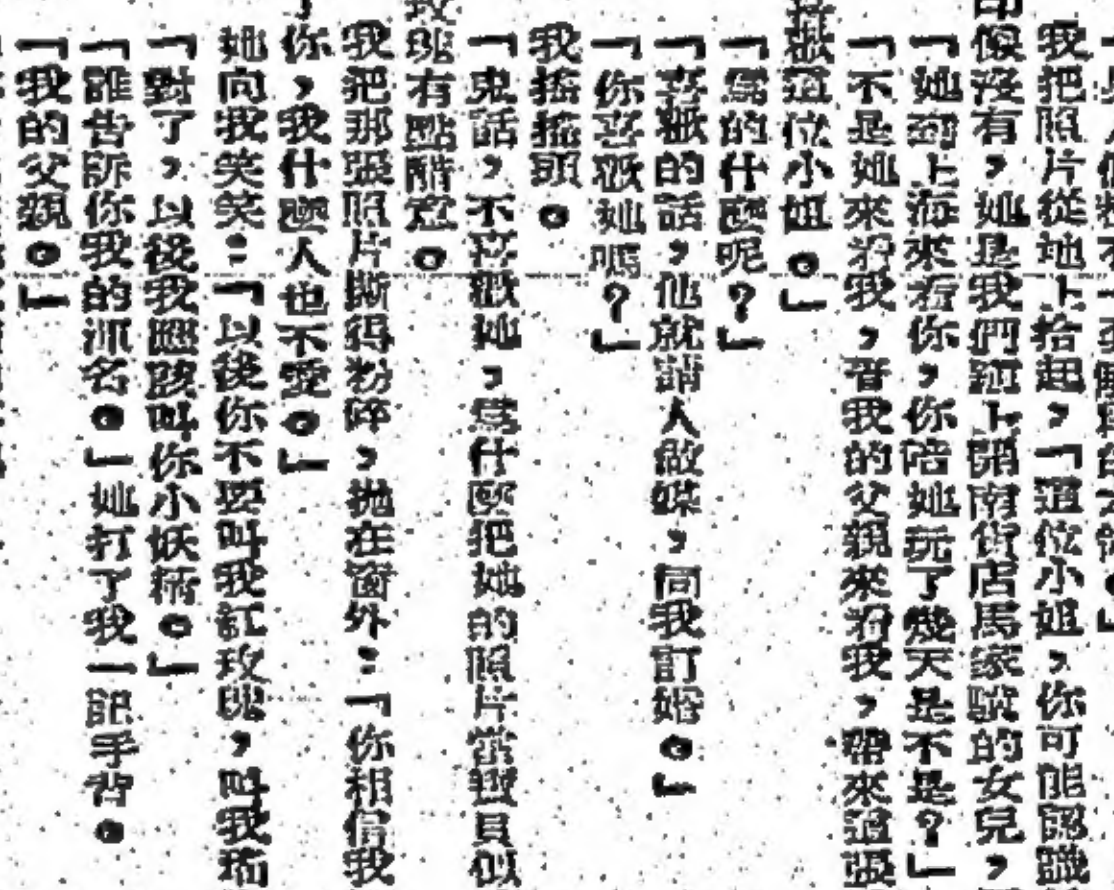 我把照片從地上拾起，「這位小姐，你可能認識
沒有，她是我們鎮上開南貨店馬家駿的女兒，
「她到上海來看你，你陪她玩了幾天是不是？」
「不是她來看我，是我的父親來看我，帶來這張
這位小姐。」
「為的什麼呢？」
「喜歡的話，他就請人做媒，同我訂婚。」
「你喜歡她嗎？」
我搖搖頭。
「鬼話，不喜歡她，為什麼把她的照片當寶貝似
玫瑰有點醋意。
我把那張照片撕得粉碎，拋在窗外：「你相信我
你，我什麼人也不愛。」
她向我笑笑：「以後你不要叫我紅玫瑰，叫我
「對了，以後我應該叫你小妖精。」
「誰告訴你我的 名。」她打了我一記手背。
「我的父親。」